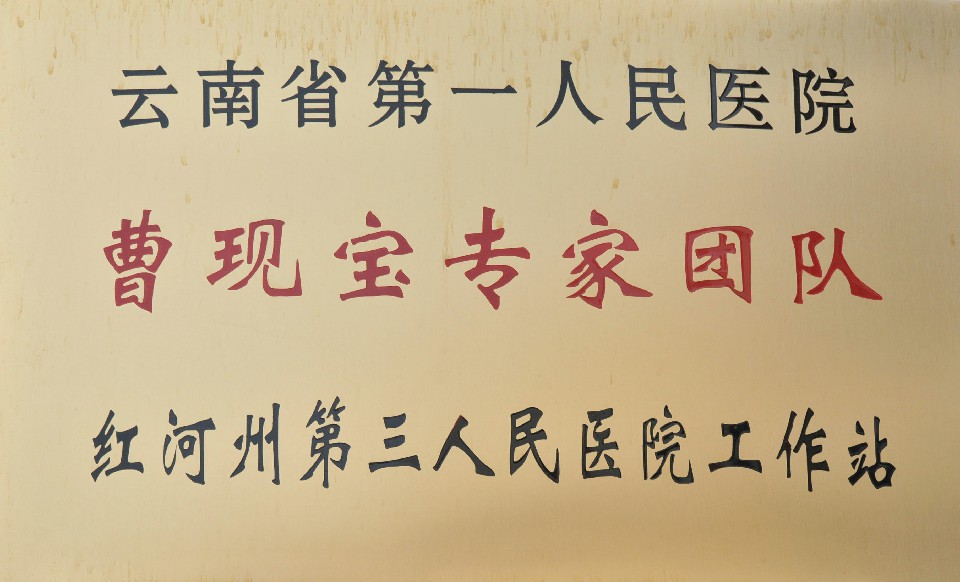 云南省第一人民医院
曹现宝专家团队
红河州第三人民医院工作站